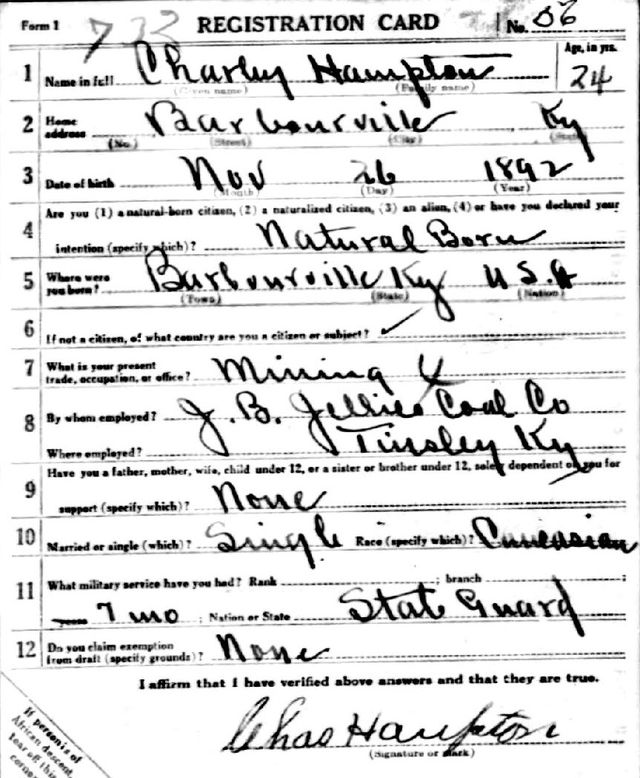 Form 1 733 REGISTRATION CARD No. 56
1 Name in full Charley Hampton Age, in yrs. 24
(Given name) (Family name)
2 Home address Barbourville Ky
(No.) (Street) (City) (State)
3 Date of birth Nov 26 1892
(Month) (Day) (Year)
Are you (1) a natural-born citizen, (2) a naturalized citizen, (3) an alien, (4) or have you declared your
4 intention (specify which)? Natural Born
5 Where were you born? Barbourville Ky U S A
(Town) (State) (Nation)
6 If not a citizen, of what country are you a citizen or subject? ✓
7 What is your present trade, occupation, or office? Mining
8 By whom employed? J. B. Jellico Coal Co
Where employed? Tinsley Ky
Have you a father, mother, wife, child under 12, or a sister or brother under 12, solely dependent on you for
9 support (specify which)? None
10 Married or single (which)? Single Race (specify which)? Caucasian
11 What military service have you had? Rank ; branch ;
years 7 mo ; Nation or State State Guard
12 Do you claim exemption from draft (specify grounds)? None
I affirm that I have verified above answers and that they are true.
Chas Hampton
(Signature or mark)
If person is of
African descent,
tear off this
corner